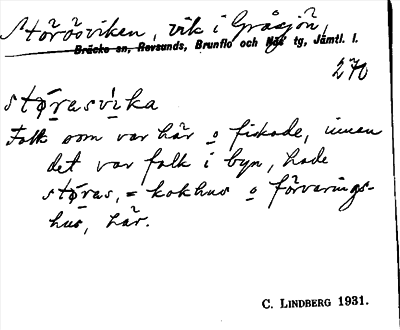 Störösviken, vik i Gråsjön,
Bräcke sn, Revsunds, Brunflo och Näs tg, Jämtl. l.
270
støŗasvìka
Folk som var här o fiskade, innan
det var folk i byn, hade
støras, = kokhus o förvarings-
hus, här.
C. LINDBERG 1931.